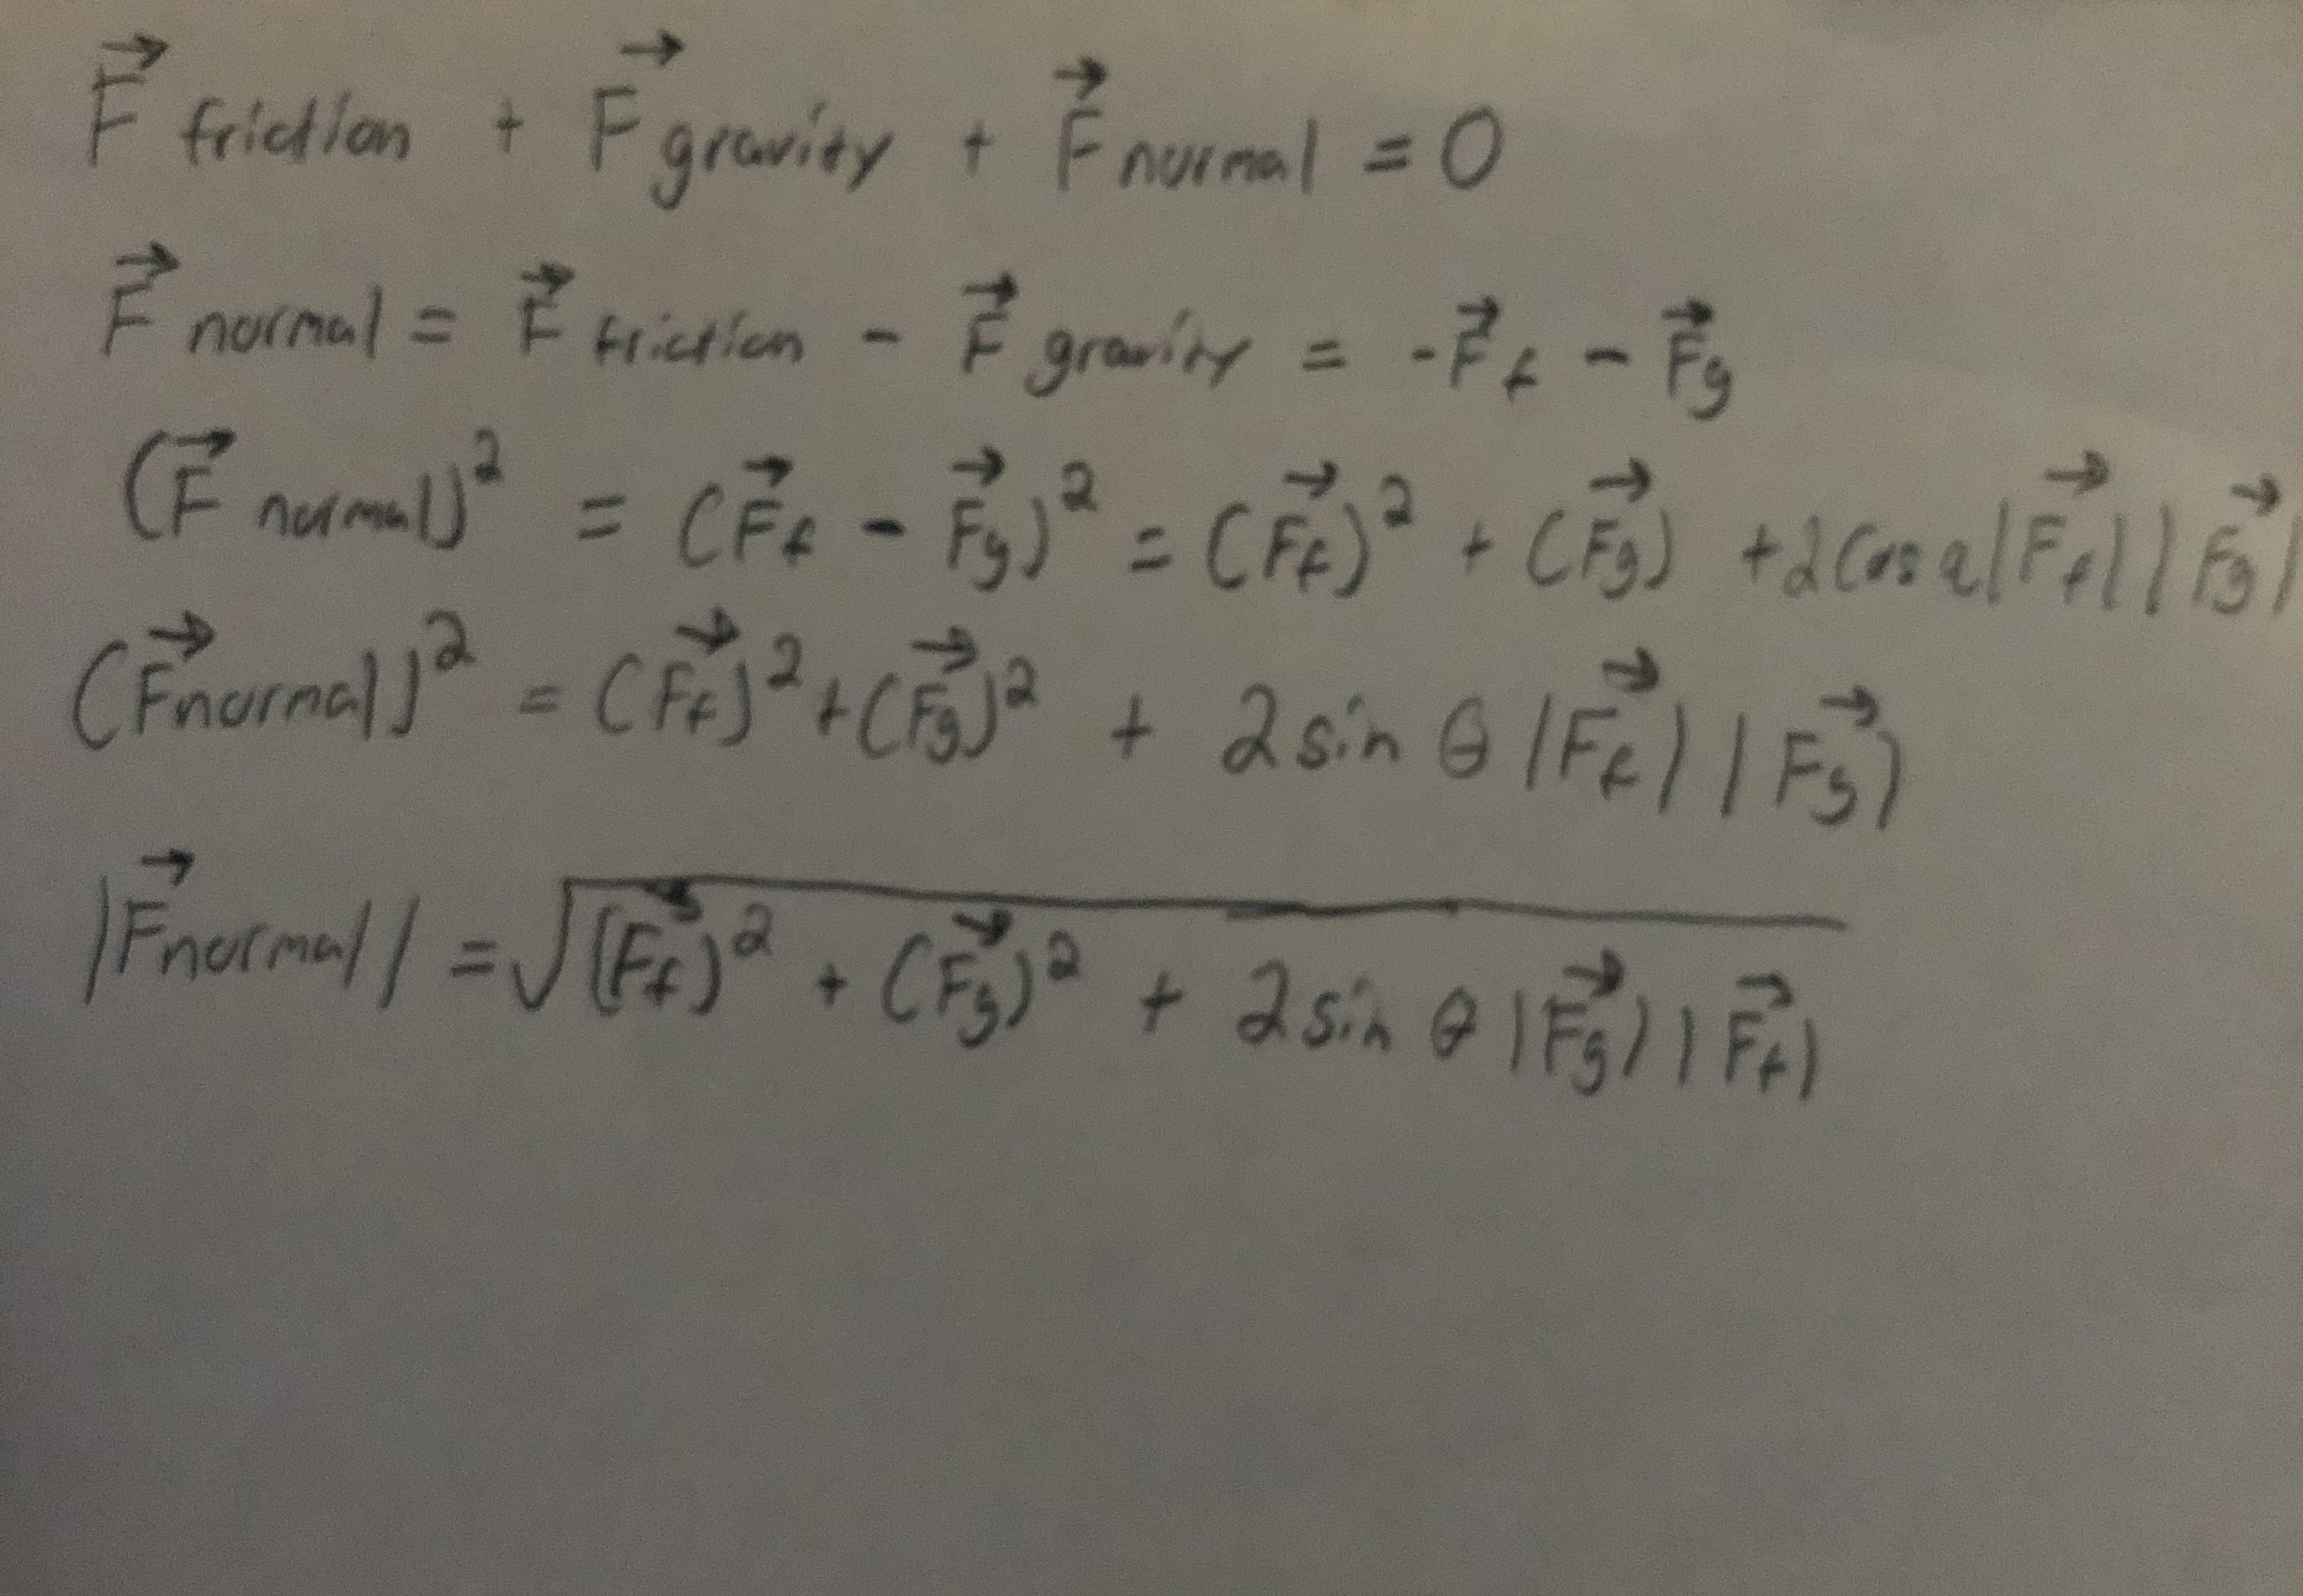 F⃗ friction + F⃗ gravity + F⃗ normal = 0
F⃗ normal = F⃗ friction - F⃗ gravity = -F⃗f - F⃗g
(F⃗ normal)² = (F⃗f - F⃗g)² = (F⃗f)² + (F⃗g) + 2 cos a|F⃗f||F⃗g|
(F⃗normal)² = (F⃗f)² + (F⃗g)² + 2 sin θ |F⃗f||F⃗g|
|F⃗normal| = √((F⃗f)² + (F⃗g)² + 2 sin θ |F⃗g||F⃗f|)